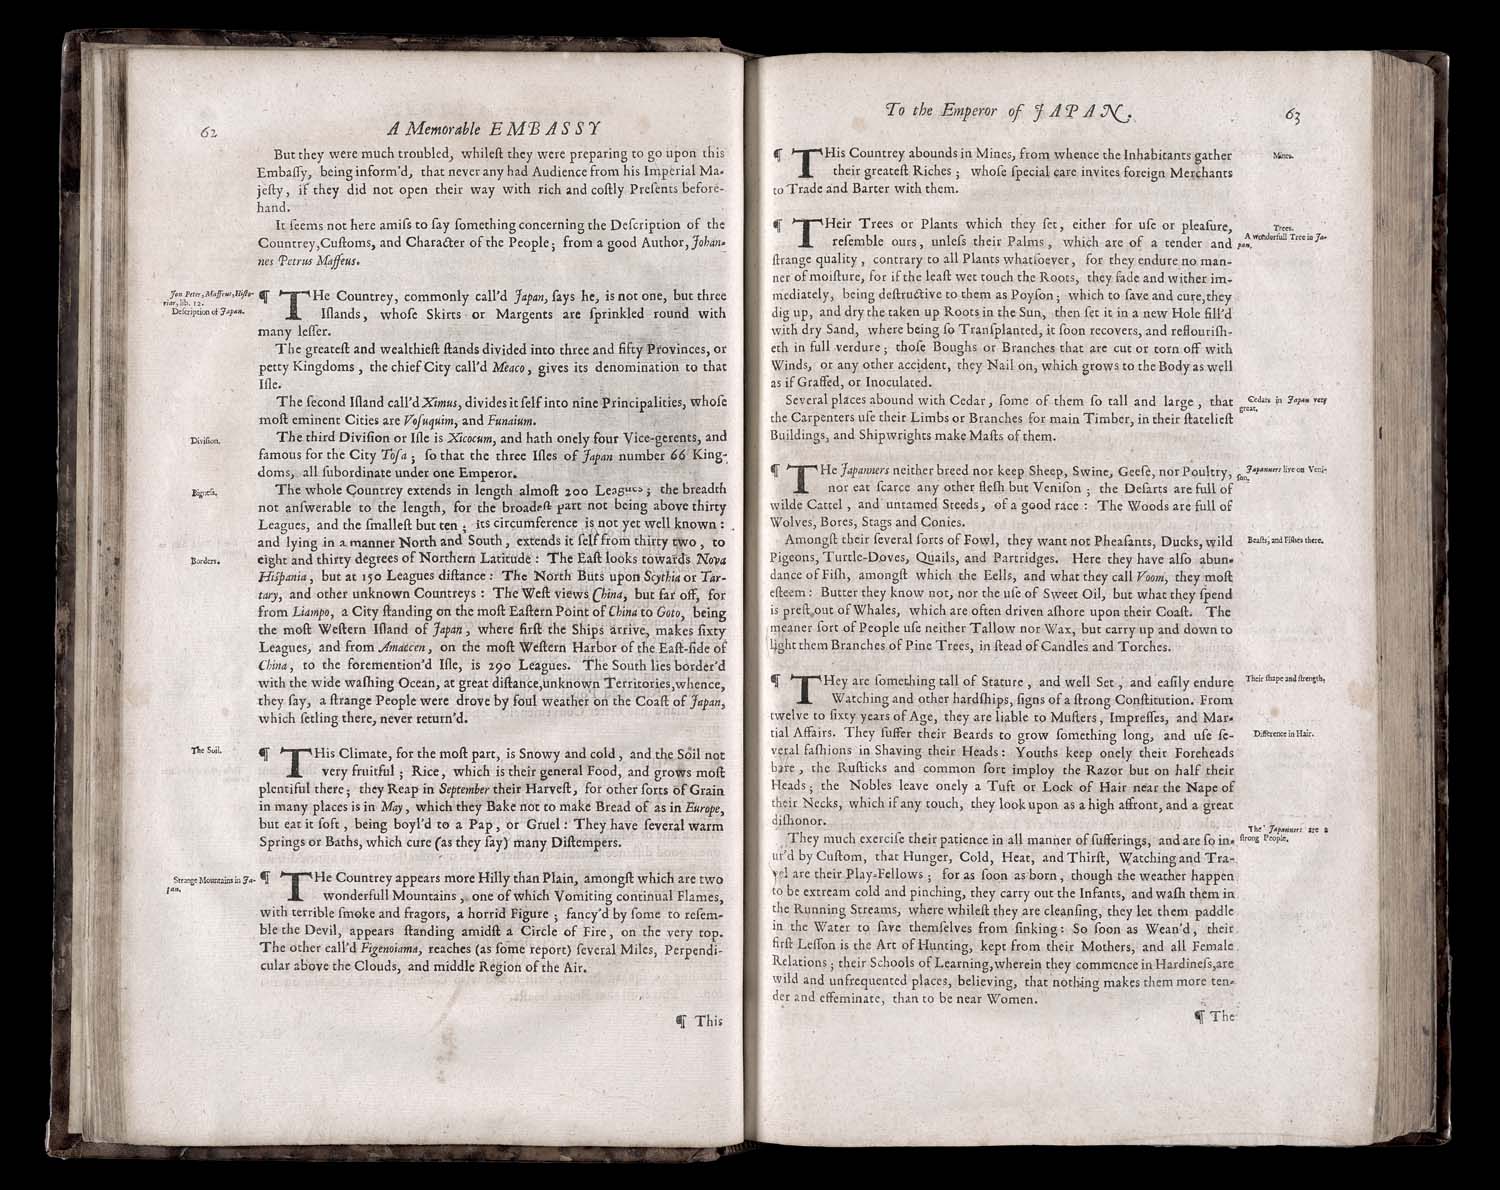 62
A Memorable EMBASSY
But they were much troubled, whileſt they were preparing to go upon this
Embaſſy, being inform'd, that never any had Audience from his Imperial Ma-
jeſty, if they did not open their way with rich and coſtly Preſents before-
hand.
It ſeems not here amiſs to ſay ſomething concerning the Deſcription of the
Countrey,Cuſtoms, and Character of the People; from a good Author, Johan-
nes Petrus Maffeus.
Jon Peter, Maffeus, Hiſto-
riar, lib. 12.
Deſcription of Japan.
¶ THe Countrey, commonly call'd Japan, ſays he, is not one, but three
Iſlands, whoſe Skirts or Margents are ſprinkled round with
many leſſer.
The greateſt and wealthieſt ſtands divided into three and fifty Provinces, or
petty Kingdoms, the chief City call'd Meaco, gives its denomination to that
Iſle.
The ſecond Iſland call'd Ximus, divides it ſelf into nine Principalities, whoſe
moſt eminent Cities are Voſuquim, and Funaium.
Diviſion.
The third Diviſion or Iſle is Xicocum, and hath onely four Vice-gerents, and
famous for the City Toſa; ſo that the three Iſles of Japan number 66 King-
doms, all ſubordinate under one Emperor.
Bigneſs.
The whole Countrey extends in length almoſt 200 Leagues; the breadth
not anſwerable to the length, for the broadeſt part not being above thirty
Leagues, and the ſmalleſt but ten; its circumference is not yet well known:
and lying in a manner North and South, extends it ſelf from thirty two, to
Borders.
eight and thirty degrees of Northern Latitude: The Eaſt looks towards Nova
Hiſpania, but at 150 Leagues diſtance: The North Buts upon Scythia or Tar-
tary, and other unknown Countreys: The Weſt views China, but far off, for
from Liampo, a City ſtanding on the moſt Eaſtern Point of China to Goto, being
the moſt Weſtern Iſland of Japan, where firſt the Ships arrive, makes ſixty
Leagues, and from Amaecen, on the moſt Weſtern Harbor of the Eaſt-ſide of
China, to the foremention'd Iſle, is 290 Leagues. The South lies border'd
with the wide waſhing Ocean, at great diſtance,unknown Territories,whence,
they ſay, a ſtrange People were drove by foul weather on the Coaſt of Japan,
which ſetling there, never return'd.
The Soil.
¶ THis Climate, for the moſt part, is Snowy and cold, and the Soil not
very fruitful; Rice, which is their general Food, and grows moſt
plentiful there; they Reap in September their Harveſt, for other ſorts of Grain
in many places is in May, which they Bake not to make Bread of as in Europe,
but eat it ſoft, being boyl'd to a Pap, or Gruel: They have ſeveral warm
Springs or Baths, which cure (as they ſay) many Diſtempers.
Strange Mountains in Ja-
pan.
¶ THe Countrey appears more Hilly than Plain, amongſt which are two
wonderfull Mountains, one of which Vomiting continual Flames,
with terrible ſmoke and fragors, a horrid Figure; fancy'd by ſome to reſem-
ble the Devil, appears ſtanding amidſt a Circle of Fire, on the very top.
The other call'd Figenoiama, reaches (as ſome report) ſeveral Miles, Perpendi-
cular above the Clouds, and middle Region of the Air.
¶ This
To the Emperor of JAPAN.
63
¶ THis Countrey abounds in Mines, from whence the Inhabitants gather
Mines.
their greateſt Riches; whoſe ſpecial care invites foreign Merchants
to Trade and Barter with them.
¶ THeir Trees or Plants which they ſet, either for uſe or pleaſure,
Trees.
A wonderfull Tree in Ja-
pan.
reſemble ours, unleſs their Palms, which are of a tender and
ſtrange quality, contrary to all Plants whatſoever, for they endure no man-
ner of moiſture, for if the leaſt wet touch the Roots, they fade and wither im-
mediately, being deſtructive to them as Poyſon; which to ſave and cure,they
dig up, and dry the taken up Roots in the Sun, then ſet it in a new Hole fill'd
with dry Sand, where being ſo Tranſplanted, it ſoon recovers, and reflouriſh-
eth in full verdure; thoſe Boughs or Branches that are cut or torn off with
Winds, or any other accident, they Nail on, which grows to the Body as well
as if Graffed, or Inoculated.
Several places abound with Cedar, ſome of them ſo tall and large, that
Cedars in Japan very
great.
the Carpenters uſe their Limbs or Branches for main Timber, in their ſtatelieſt
Buildings, and Shipwrights make Maſts of them.
¶ THe Japanners neither breed nor keep Sheep, Swine, Geeſe, nor Poultry,
Japanners live on Veni-
ſon.
nor eat ſcarce any other fleſh but Veniſon; the Deſarts are full of
wilde Cattel, and untamed Steeds, of a good race: The Woods are full of
Wolves, Bores, Stags and Conies.
Amongſt their ſeveral ſorts of Fowl, they want not Pheaſants, Ducks, wild
Beaſts, and Fiſhes there.
Pigeons, Turtle-Doves, Quails, and Partridges. Here they have alſo abun-
dance of Fiſh, amongſt which the Eells, and what they call Voom, they moſt
eſteem: Butter they know not, nor the uſe of Sweet Oil, but what they ſpend
is preſt out of Whales, which are often driven aſhore upon their Coaſt. The
meaner ſort of People uſe neither Tallow nor Wax, but carry up and down to
light them Branches of Pine Trees, in ſtead of Candles and Torches.
¶ THey are ſomething tall of Stature, and well Set, and eaſily endure
Their ſhape and ſtrength,
Watching and other hardſhips, ſigns of a ſtrong Conſtitution. From
twelve to ſixty years of Age, they are liable to Muſters, Impreſſes, and Mar-
tial Affairs. They ſuffer their Beards to grow ſomething long, and uſe ſe-
Difference in Hair.
veral faſhions in Shaving their Heads: Youths keep onely their Foreheads
bare, the Ruſticks and common ſort imploy the Razor but on half their
Heads; the Nobles leave onely a Tuft or Lock of Hair near the Nape of
their Necks, which if any touch, they look upon as a high affront, and a great
diſhonor.
The Japanners are a
ſtrong People.
They much exerciſe their patience in all manner of ſufferings, and are ſo in-
ur'd by Cuſtom, that Hunger, Cold, Heat, and Thirſt, Watching and Tra-
vel are their Play-Fellows; for as ſoon as born, though the weather happen
to be extream cold and pinching, they carry out the Infants, and waſh them in
the Running Streams, where whileſt they are cleanſing, they let them paddle
in the Water to ſave themſelves from ſinking: So ſoon as Wean'd, their
firſt Leſſon is the Art of Hunting, kept from their Mothers, and all Female
Relations; their Schools of Learning,wherein they commence in Hardineſs,are
wild and unfrequented places, believing, that nothing makes them more ten-
der and effeminate, than to be near Women.
¶ The